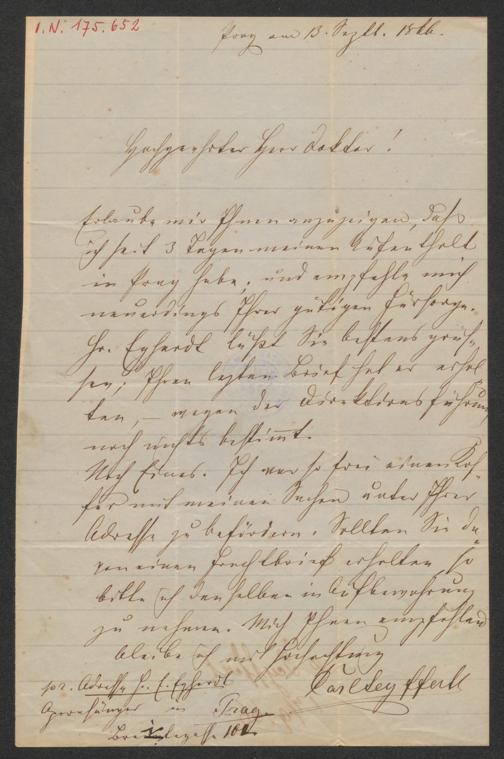 I.N. 175.652
Prag am 13. Septb. 1866.
Hochgeehrter Herr Doktor!
Erlaube mir Ihnen anzuzeigen, daß
ich seit 3 Tagen meinen Aufenthalt
in Prag habe, und empfehle mich
neuerdings Ihrer gütigen Fürsorge.
Hr. Eghardt läßt Sie bestens grüs-
sen; Ihren lezten Brief hat er erhal
ten, – wegen der Direktionsführung
noch nichts bestimmt.
Noch Eines. Ich war so frei einen Kof-
fer mit meinen Sachen unter Ihrer
Adresse zu befördern. Sollten Sie da
von einen Frachtbrief erhalten, so
bitte ich denselben in Aufbewahrung
zu nehmen. Mich Ihnen empfehlend
bleibe ich mit Hochachtung
Carl Seyfferth
pr. Adresse H. C. Eghardt
Opernsänger in Prag